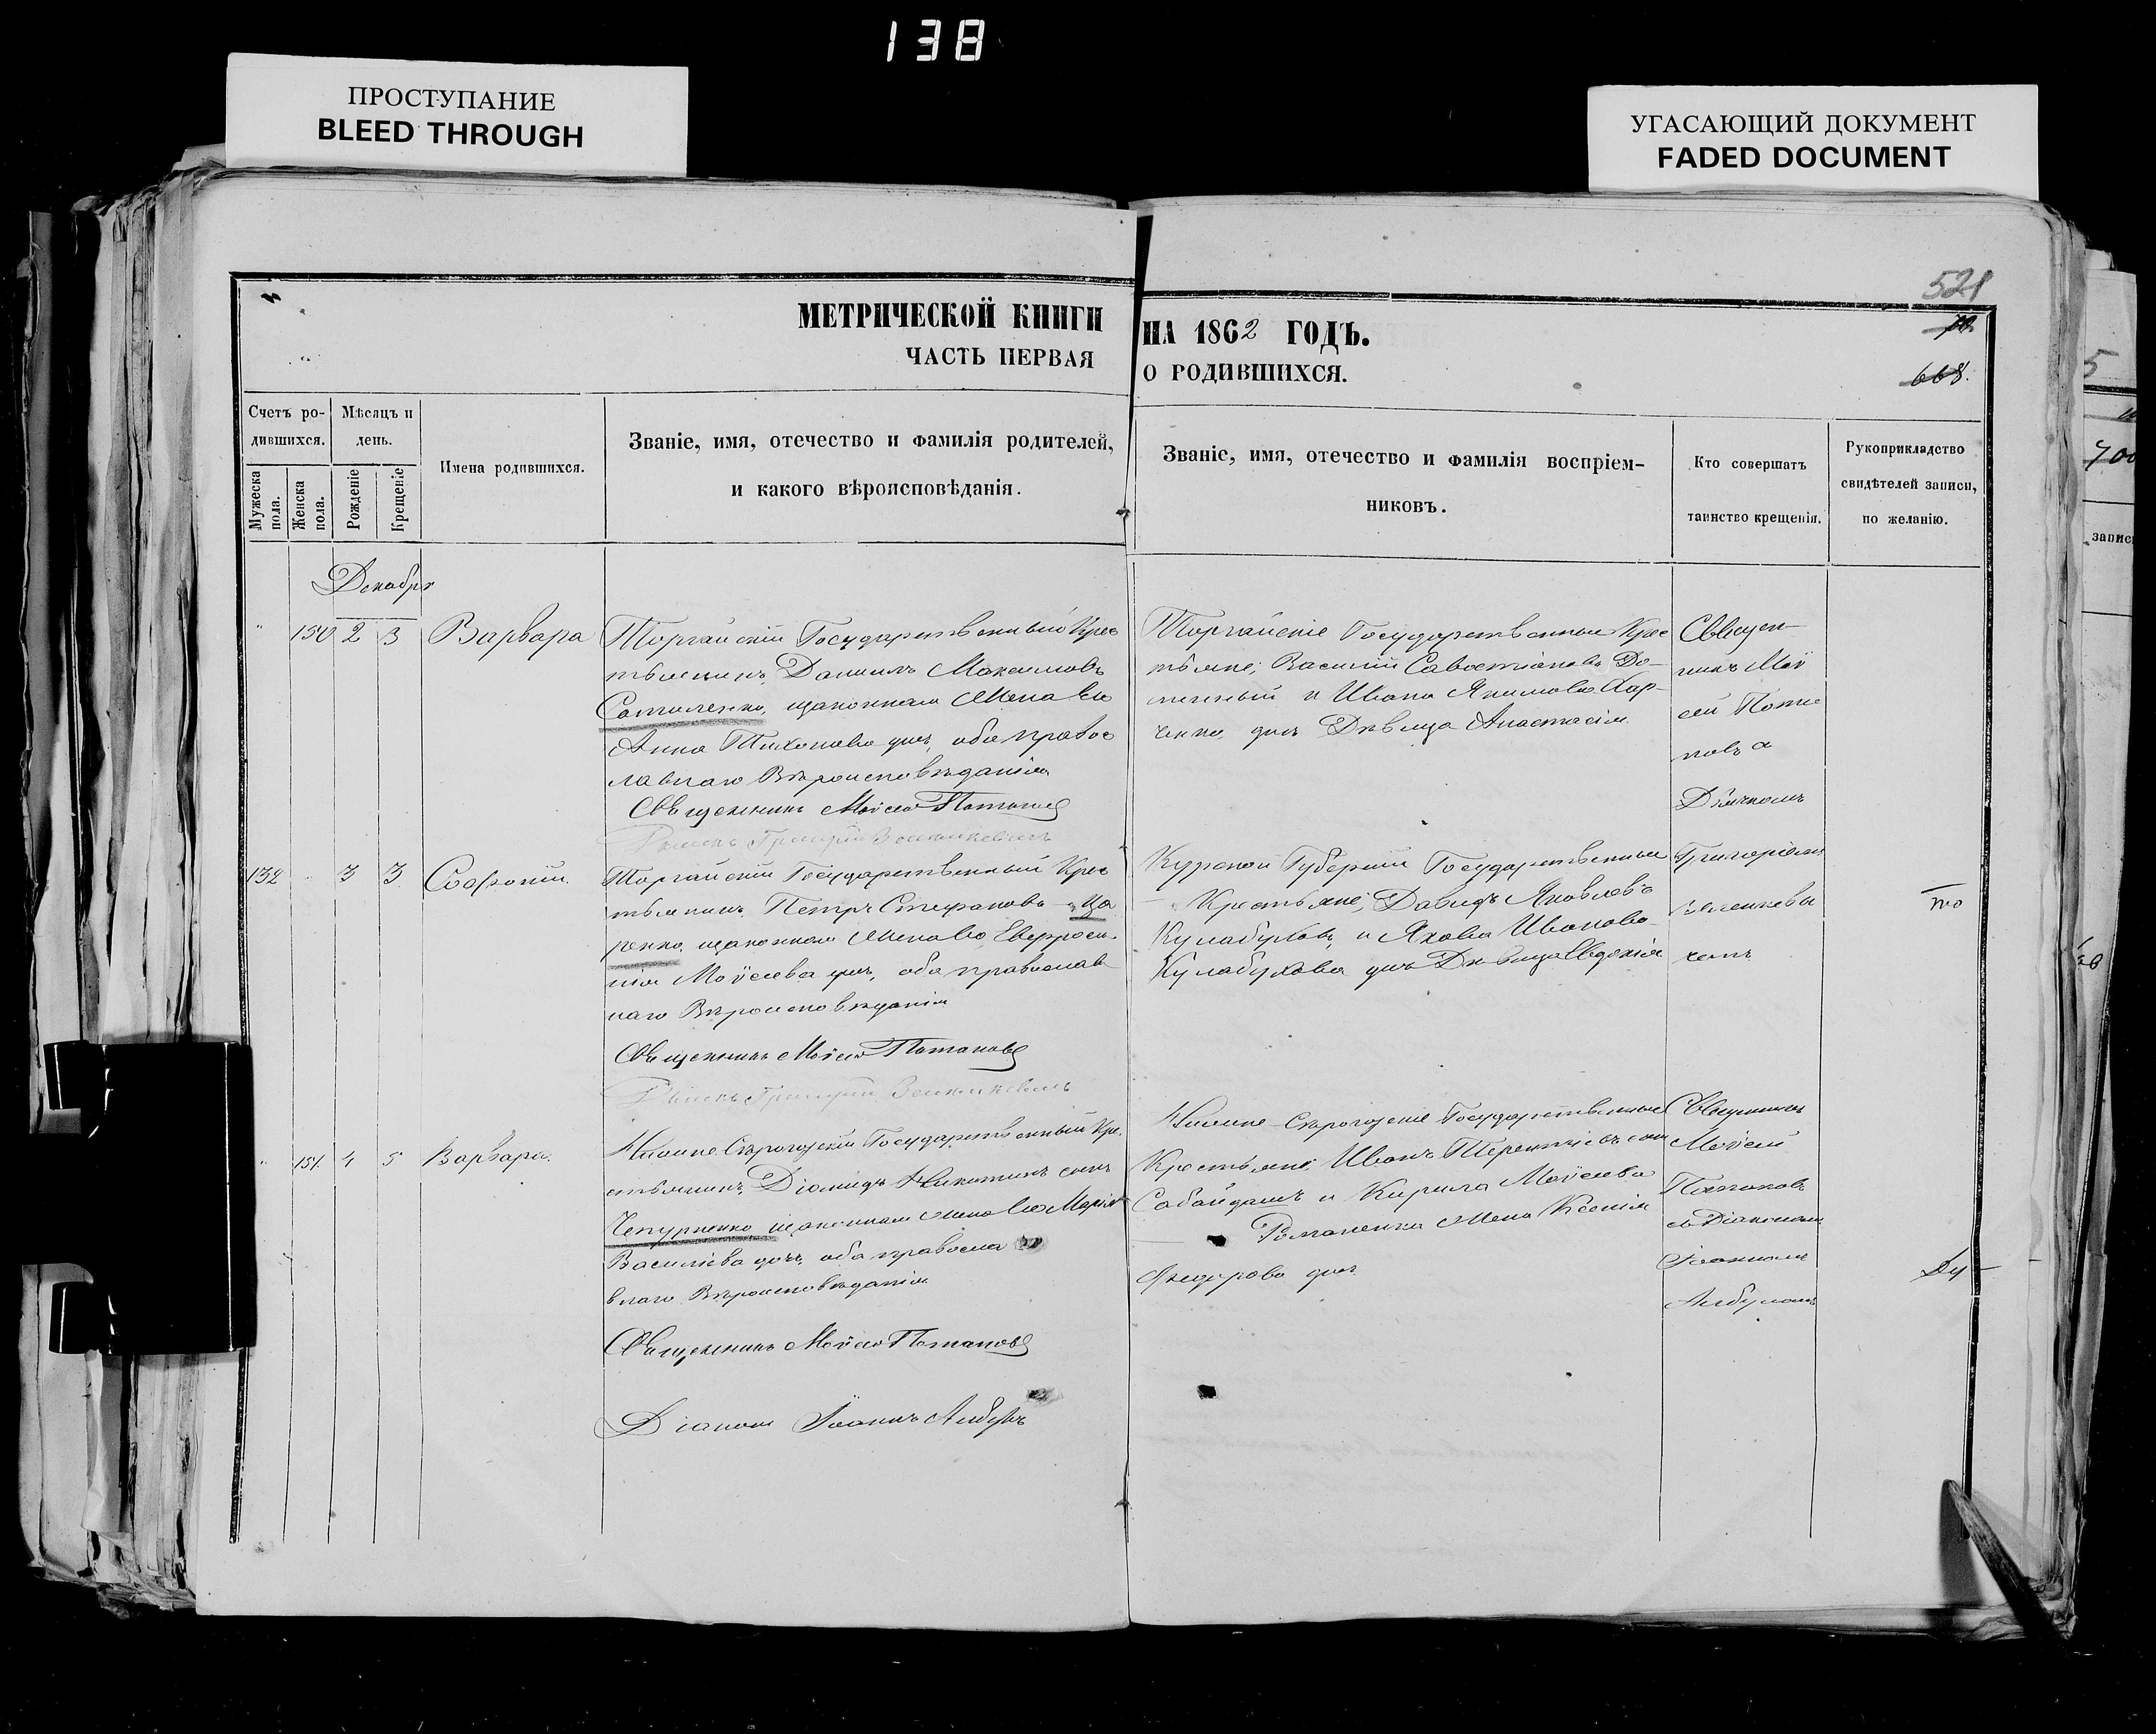 138
ПРОСТУПАНИЕ
BLEED THROUGH
УГАСАЮЩИЙ ДОКУМЕНТ
FADED DOCUMENT
521
МЕТРИЧЕСКОЙ КНИГИ НА 1862 ГОДЪ.
ЧАСТЬ ПЕРВАЯ О РОДИВШИХСЯ.
668.
Счетъ ро-
дившихся.
Мужеска пола.
Женска пола.
Мѣсяцъ и
день.
Рожденіе
Крещеніе
Имена родившихся.
Званіе, имя, отечество и фамилія родителей,
и какого вѣроисповѣданія.
Званіе, имя, отечество и фамилія воспріем-
никовъ.
Кто совершатъ
таинство крещенія.
Рукоприкладство
свидѣтелей записи,
по желанію.
Декабрь
150 2 3 Варвара
Торгайскій Государственный Крес
тьянинъ, Даниилъ Максимовъ
законная Жена его
Анна Тихонова дочь, оба правос
лавнаго Вѣроисповѣданія
Священникъ Моисей Потаповъ
Торгайскіе Государственные Крес
тьяне; Василий Савостіановъ До-
и Ивана Якимова Хар-
ченко дочь Дѣвица Анастасія
Священ-
никъ Мой
сей Пота
повъ съ
Дьячкомъ
132 3 3 Софроній.
Торгайскій Государственный Крес
тьянинъ Петръ Стефановъ Ца
ренко, законная Жена его Евфроси-
нія Моисеева дочь, оба православ
наго Вѣроисповѣданія
Священникъ Моисей Потаповъ
Курской Губерніи Государственные
Крестьяне; Давидъ Яковлевъ
Кулабуховъ, и Якова Иванова
Кулабухова дочь Дѣвица Евдокія
Григоріемъ
151. 4 5 Варвара.
Нижне Сѣрогозскій Государственный Кре
стьянинъ, Діомидъ Никитинъ сынъ
Чепурненко законная Жена его Марія
Василіева дочь, оба правосла
внаго Вѣроисповѣданія
Священникъ Моисей Потаповъ
Діаконъ Іоаннъ
Нижне Сѣрогозскіе Государственные
Крестьяне Иванъ Терентіевъ сынъ
Сабайдашъ и Кирила Моисеева
Романенка Жена Ксенія
Ѳедорова дочь
Священникъ
Мойсей
Потаповъ
съ Діакономъ
Іоанномъ
700
запис